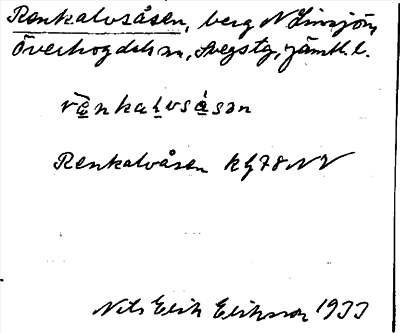 Renkalvsåsen, berg N Linsjön,
Överhogdals sn, Svegs tg, Jämtl. l.
ræ̀nkaḷvså̀sən
Renkalvåsen kbl 78 NV
Nils Erik Eriksson 1933